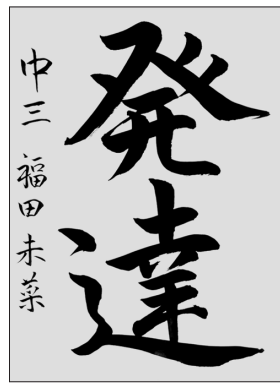 発達
中三 福田未菜